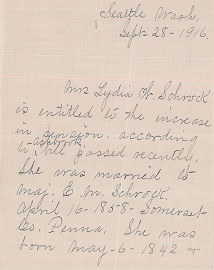 Seattle Wash.
Sept-28-1916.
Mrs Lydia A. Schrock
is entitled to the increase
in pension. according
ashbrook
to bill passed recently.
She was married to
Maj. E. M. Schrock,
April 16-1858-Somerset
Co. Penna. She was
born May-6-1842